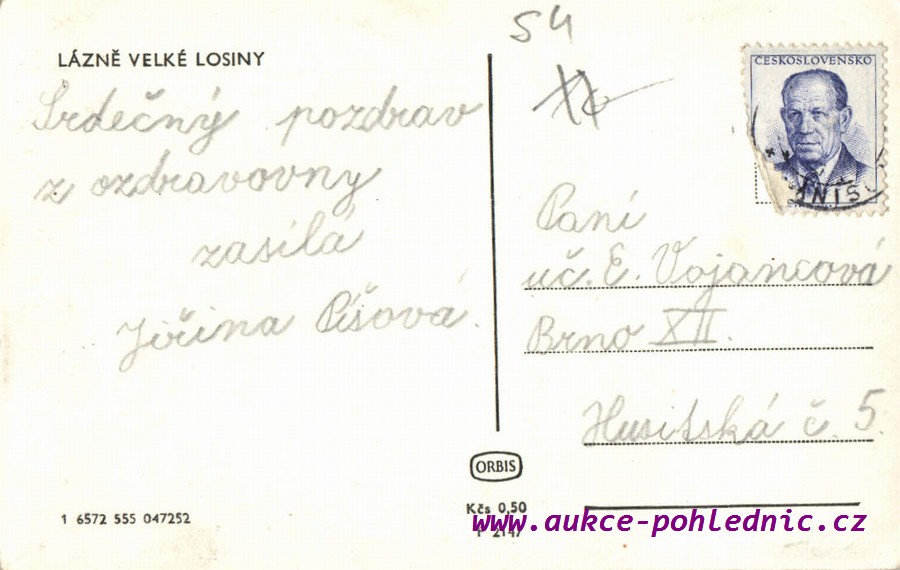 LÁZNĚ VELKÉ LOSINY
Srdečný pozdrav
z ozdravovny
zasílá
Jiřina Píšová.
54
ČESKOSLOVENSKO
Paní
uč. E. Vojancová
Brno XII.
Husitská č. 5.
ORBIS
Kčs 0,50
1 6572 555 047252
www.aukce-pohlednic.cz